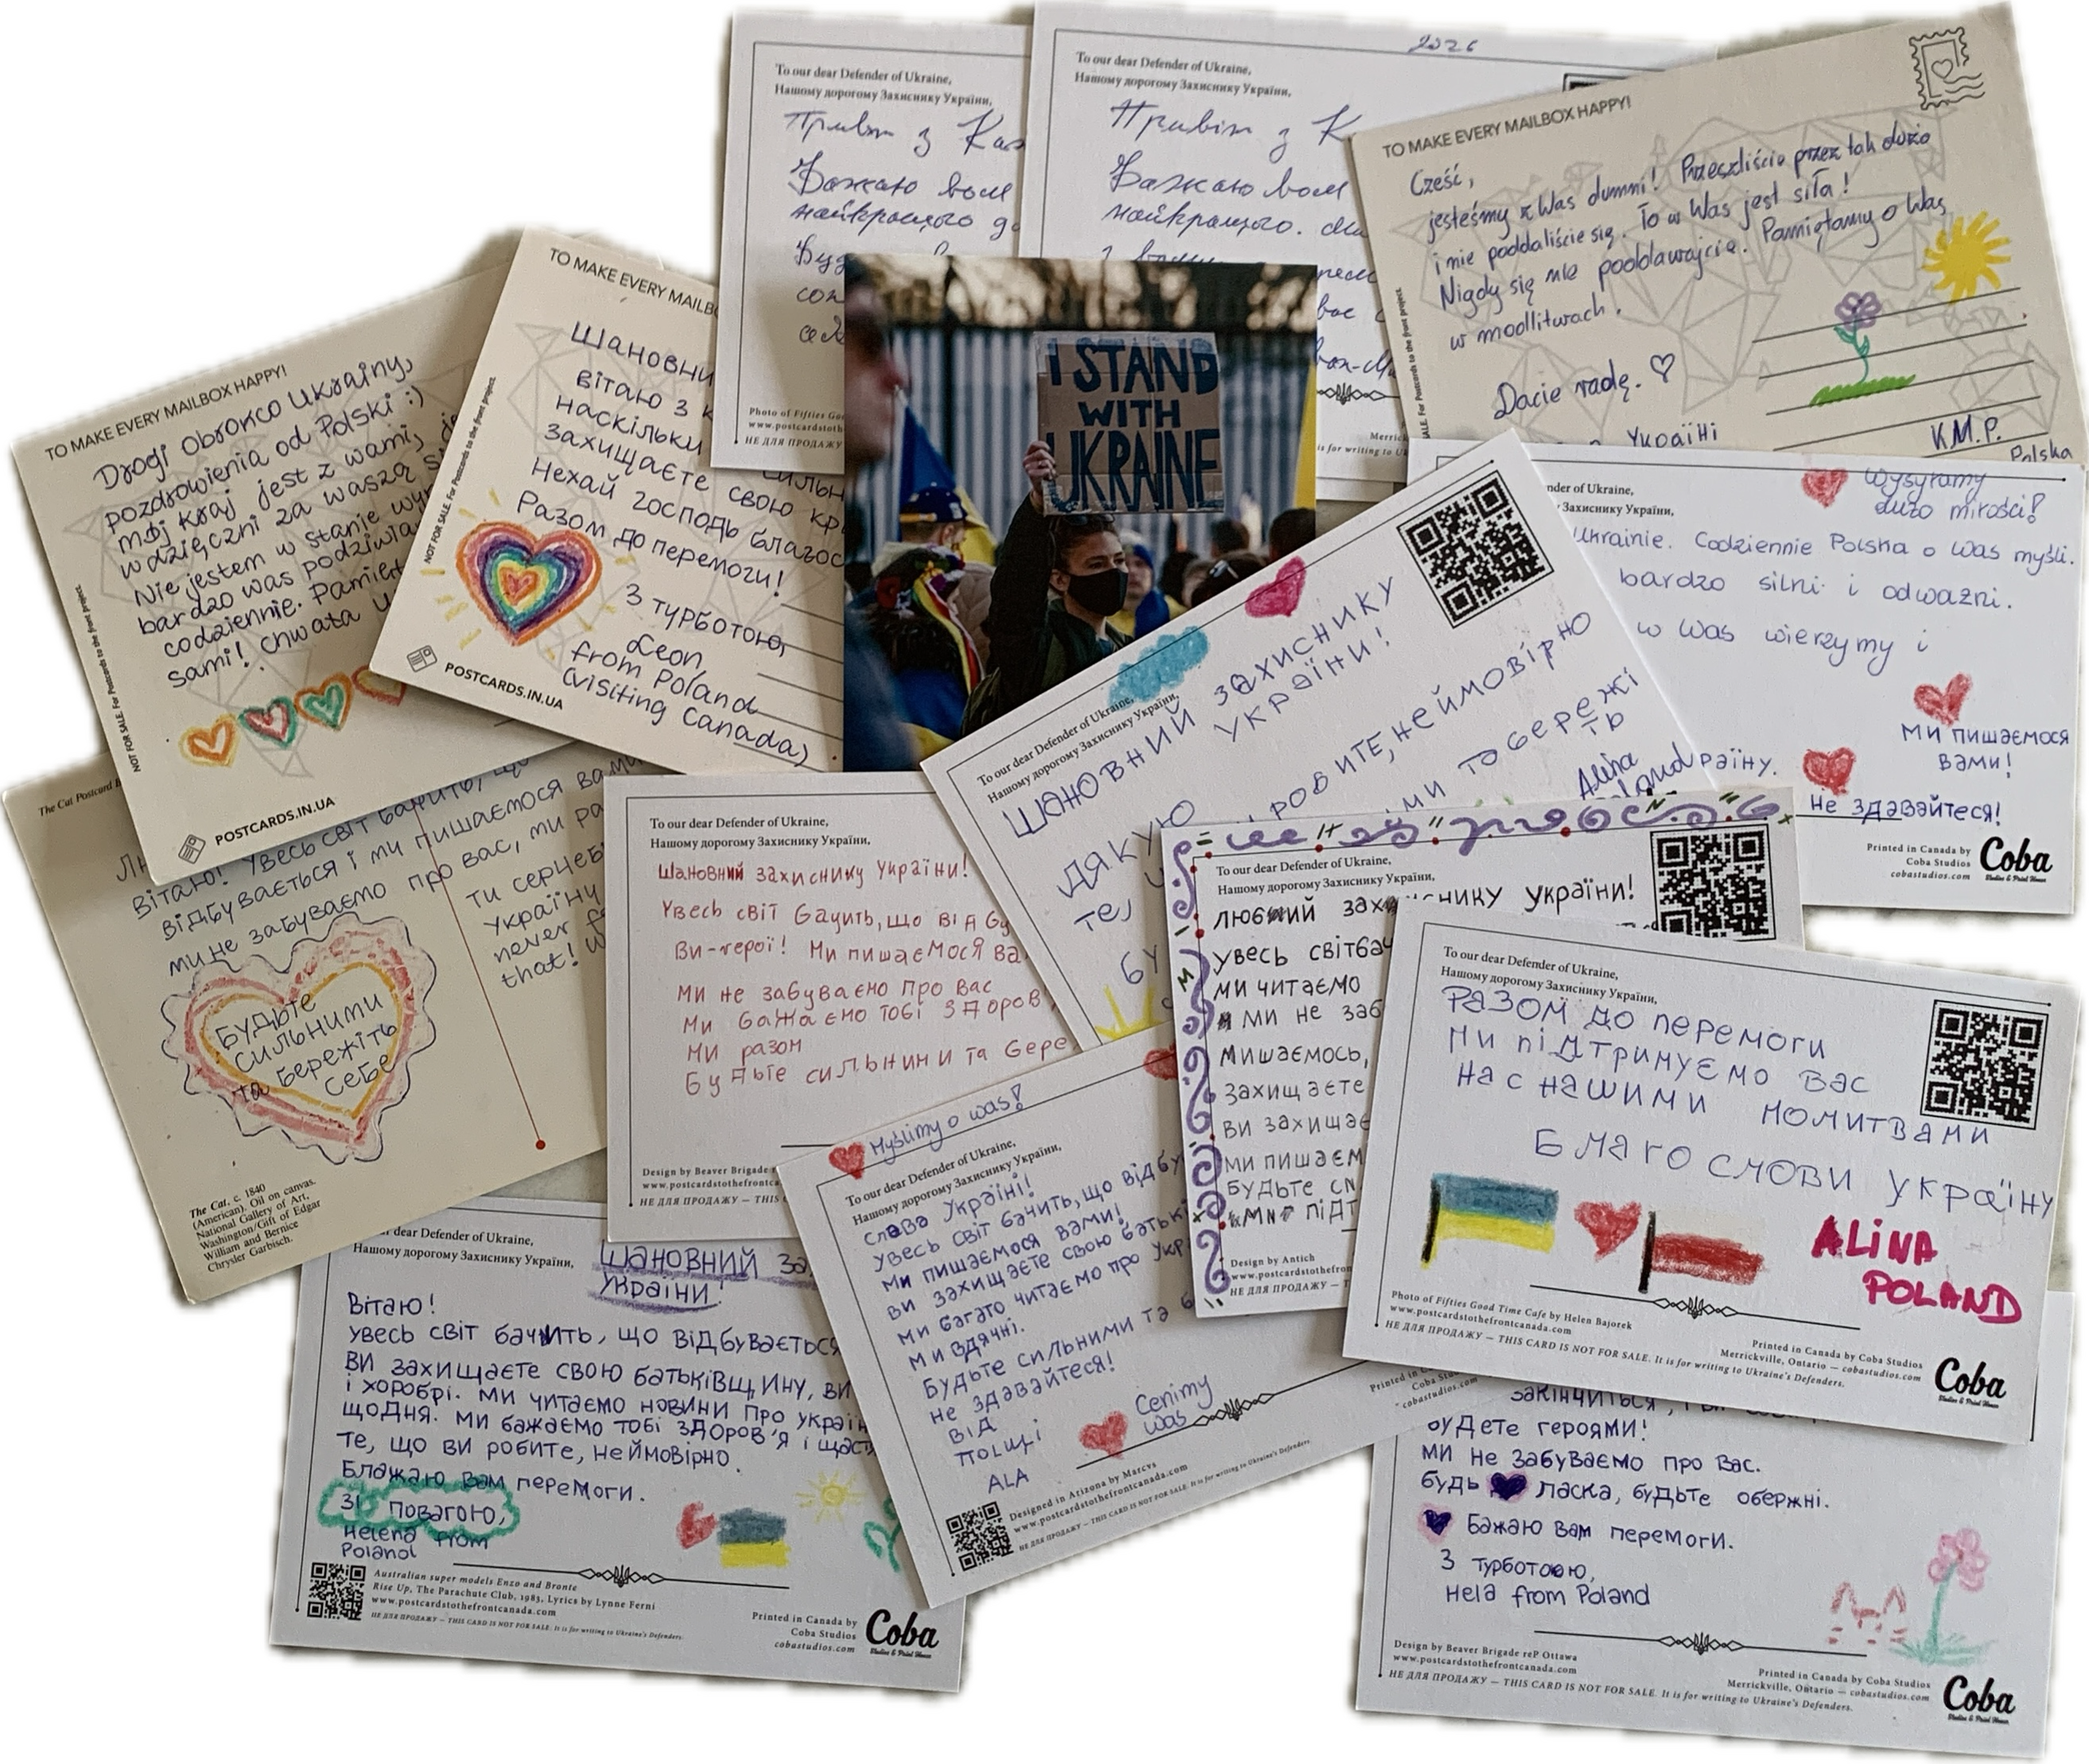 To our dear Defender of Ukraine,
Нашому дорогому Захиснику України,
Привіт з
Бажаю вам
найкращого
2026
To our dear Defender of Ukraine,
Нашому дорогому Захиснику України,
Привіт з К
Бажаю вам
найкращого.
TO MAKE EVERY MAILBOX HAPPY!
Cześć,
jesteśmy z Was dumni! Przeszliście przez tak dużo
i nie poddaliście się. To w Was jest siła!
Nigdy się nie poddawajcie. Pamiętamy o Was
w modlitwach.
Dacie radę. ♡
Україні
K.M.P.
Polska
TO MAKE EVERY MAILBOX HAPPY!
Drogi obrońco Ukrainy,
pozdrowienia od Polski :)
mój kraj jest z wami,
wdzięczni za waszą
Nie jestem w stanie
bardzo was
codziennie.
sami! chwała
NOT FOR SALE. For Postcards to the front project.
POSTCARDS.IN.UA
TO MAKE EVERY MAILB
Шановни
вітаю з к
наскільки
захищаєте свою кр
Нехай господь благос
Разом до перемоги!
З турботою,
Leon
from Poland
(visiting Canada)
NOT FOR SALE. For Postcards to the front project.
POSTCARDS.IN.UA
Photo of Fifties Go
www.postcardstoth
НЕ ДЛЯ ПРОДАЖУ
I STAND
WITH
UKRAINE
Wysyłamy
dużo miłości!
nder of Ukraine,
Захиснику України,
Ukrainie. Codziennie Polska o Was myśli.
bardzo silni i odważni.
w Was wierzymy i
ми пишаємося
вами!
раїну.
не здавайтеся!
Printed in Canada by
Coba Studios
cobastudios.com
Coba
To our dear Defender of Ukraine,
Нашому дорогому Захиснику України,
ШАНОВНИЙ ЗАХИСНИКУ
УКРАЇНИ!
ДЯКУЮ
РОБИТЕ, НЕЙМОВІРНО
ТА БЕРЕЖІ
ТЬ
Alina
The Cat Postcard B
вітаю! Увесь світ бачить, що
відбувається і ми пишаємося вами
ми не забуваємо про вас, ми ра
україну
never
that!
Будьте
сильними
та бережіть
себе
The Cat, c. 1840
(American). Oil on canvas.
National Gallery of Art,
Washington/Gift of Edgar
William and Bernice
Chrysler Garbisch.
To our dear Defender of Ukraine,
Нашому дорогому Захиснику України,
Шановний захиснику України!
Увесь світ бачить, що відбу
Ви-герої! Ми пишаємося ва
Ми не забуваємо про вас
Ми бажаємо тобі здоров
Ми разом
Будьте сильними та бере
Design by Beaver Brigade
www.postcardstothefrontca
НЕ ДЛЯ ПРОДАЖУ — THIS C
To our dear Defender of Ukraine,
Нашому дорогому Захиснику України,
любий захиснику україни!
увесь світ бач
ми читаємо
ми не заб
захищаєте
ви захищає
ми пишаєм
будьте
підт
Design by Antich
www.postcardstothefron
НЕ ДЛЯ ПРОДАЖУ — THIS
To our dear Defender of Ukraine,
Нашому дорогому Захиснику України,
РАЗОМ ДО перемоги
Ми підтримуємо вас
нас нашими молитвами
Благослови україну
ALINA
POLAND
Photo of Fifties Good Time Cafe by Helen Bajorek
www.postcardstothefrontcanada.com
НЕ ДЛЯ ПРОДАЖУ — THIS CARD IS NOT FOR SALE. It is for writing to Ukraine's Defenders.
Printed in Canada by Coba Studios
Merrickville, Ontario — cobastudios.com
Coba
Myślimy o was!
To our dear Defender of Ukraine,
Нашому дорогому Захиснику України,
слава Україні!
увесь світ бачить, що відбу
Ми пишаємося вами!
ви захищаєте свою батькі
ми багато читаємо про укр
ми вдячні.
Будьте сильними та б
не здавайтеся!
від
ALA
Cenimy
was
Designed in Arizona by Marcvs
www.postcardstothefrontcanada.com
НЕ ДЛЯ ПРОДАЖУ — THIS CARD IS NOT FOR SALE. It is for writing to Ukraine's Defenders.
dear Defender of Ukraine,
Нашому дорогому Захиснику України,
Шановний за
україни!
Вітаю!
увесь світ бачить, що відбувається
ви захищаєте свою батьківщину, ви
і хоробрі. ми читаємо новини про україн
щодня. ми бажаємо тобі здоров'я і щаст
те, що ви робите, неймовірно.
Блажаю вам перемоги.
Зі повагою,
Helena from
Poland
Australian super models Enzo and Bronte
Rise Up, The Parachute Club, 1983, Lyrics by Lynne Ferni
www.postcardstothefrontcanada.com
НЕ ДЛЯ ПРОДАЖУ — THIS CARD IS NOT FOR SALE. It is for writing to Ukraine's Defenders.
Printed in Canada by
Coba Studios
cobastudios.com
Coba
закінчиться,
будете героями!
ми не забуваємо про вас.
будь ласка, будьте обержні.
Бажаю вам перемоги.
З турботою,
Hela from Poland
Design by Beaver Brigade reP Ottawa
www.postcardstothefrontcanada.com
НЕ ДЛЯ ПРОДАЖУ — THIS CARD IS NOT FOR SALE. It is for writing to Ukraine's Defenders.
Printed in Canada by Coba Studios
Merrickville, Ontario — cobastudios.com
Coba